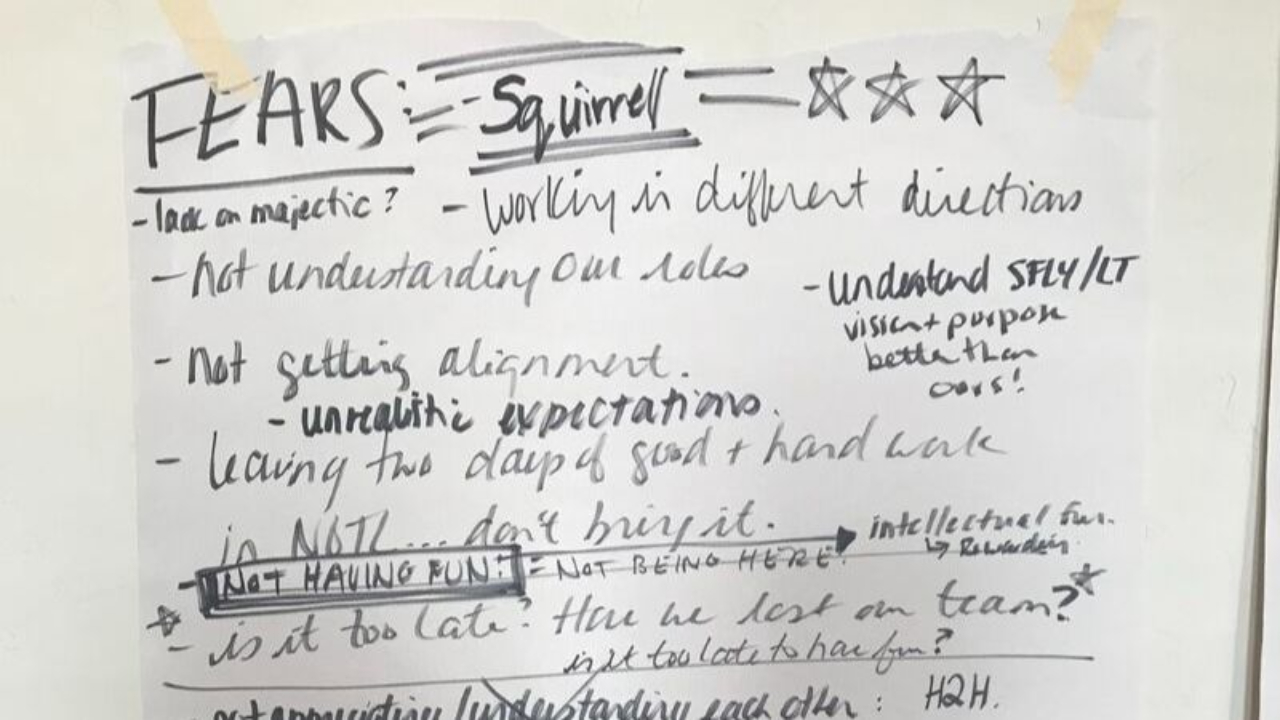 FEARS: = - Squirrell =
- lack on majectic? - working in different directions
- not understanding our roles
- understand SFLY/LT
vision + purpose
better than
ours!
- not getting alignment.
- unrealistic expectations.
- leaving two days of good + hard work
in NOTL... don't bring it.
intellectual fun.
↳ Rewarding.
- NOT HAVING FUN! = NOT BEING HERE!
- is it too late? Have we lost our team?
is it too late to have fun?
not appreciating / understanding each other : H2H.